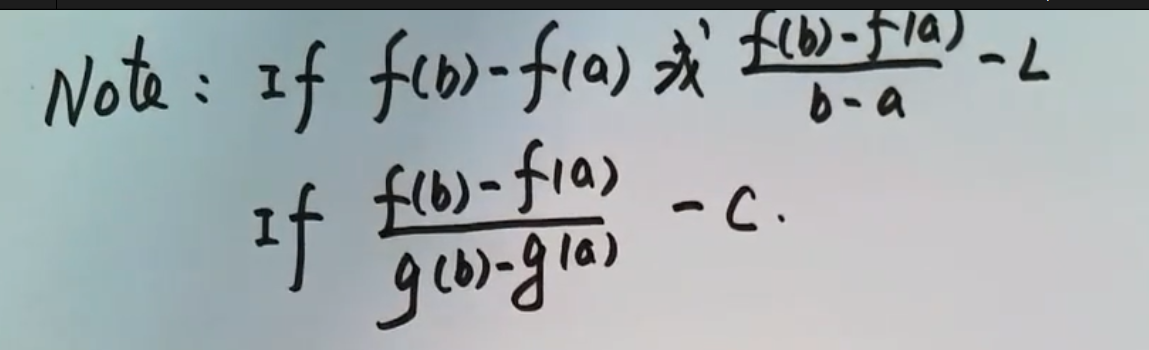 Note: If f(b)-f(a) 或 \frac{f(b)-f(a)}{b-a} - L
If \frac{f(b)-f(a)}{g(b)-g(a)} - C.